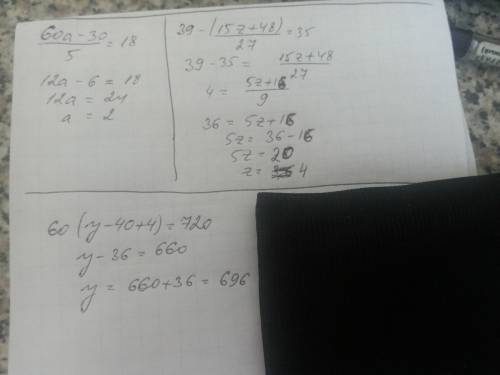 60a-30/5 = 18
12a - 6 = 18
12a = 24
a = 2
39 - (15z+48)/27 = 35
39 - 35 = 15z+48/27
4 = 5z+16/9
36 = 5z+16
5z = 36-16
5z = 20
z = 4
60(y-40+4)=720
y-36 = 660
y = 660+36 = 696